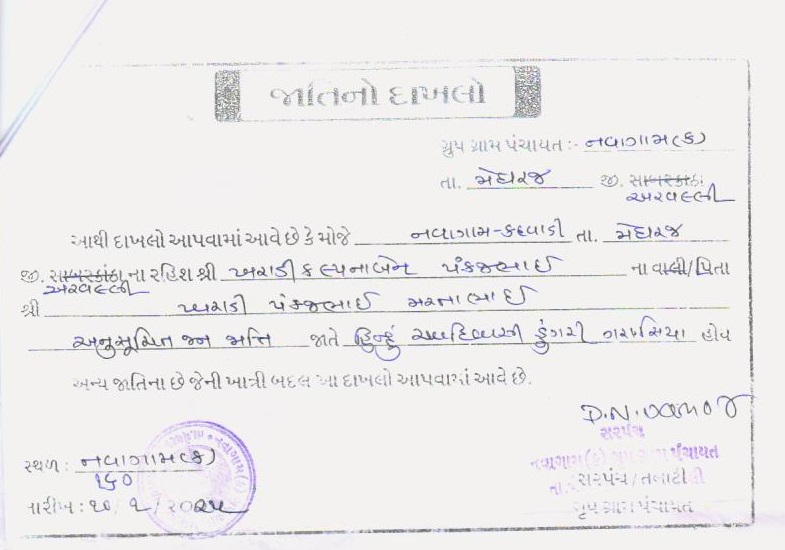 જાતિનો દાખલો
ગ્રુપ ગ્રામ પંચાયત :- નવાગામ(ક)
તા. મેઘરજ જી. સાબરકાંઠા
અરવલ્લી
આથી દાખલો આપવામાં આવે છે કે મોજે નવાગામ-કદવાડી તા. મેઘરજ
જી. સાબરકાંઠા ના રહિશ શ્રી ખરાડી કલ્પનાબેન પંકજભાઈ ના વાલી/પિતા
અરવલ્લી
શ્રી ખરાડી પંકજભાઈ મરતાભાઈ
અનુસૂચિત જન જાતિ જાતે હિન્દુ આદિવાસી ડુંગરી ગરાસિયા હોય
અન્ય જાતિના છે જેની ખાત્રી બદલ આ દાખલો આપવામાં આવે છે.
D.N.Damor
સરપંચ
નવાગામ(ક) ગૃપ ગ્રામ પંચાયત
સ્થળ : નવાગામ(ક)
સરપંચ / તલાટી
તારીખ :
ગૃપ ગ્રામ પંચાયત